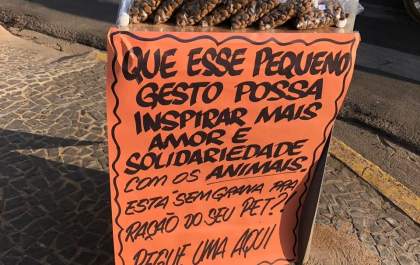 QUE ESSE PEQUENO
GESTO POSSA
INSPIRAR MAIS
AMOR E
SOLIDARIEDADE
COM OS ANIMAIS.
ESTÁ SEM GRANA PRA
RAÇÃO DO SEU PET?
PEGUE UMA AQUI